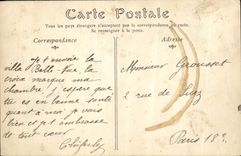 Carte Postale
Tous les pays étrangers n'acceptent pas la correspondance au recto.
Se renseigner à la poste.
Correspondance
Adresse
Je t'envoie la
ville Belle-Vue la
croix marque ma
chambre, j'espère que
tu es en bonne santé
quant à moi, je vais
bien et je t'embrasse
de tout cœur
Monsieur Grousset
2 rue de
Paris 18e.